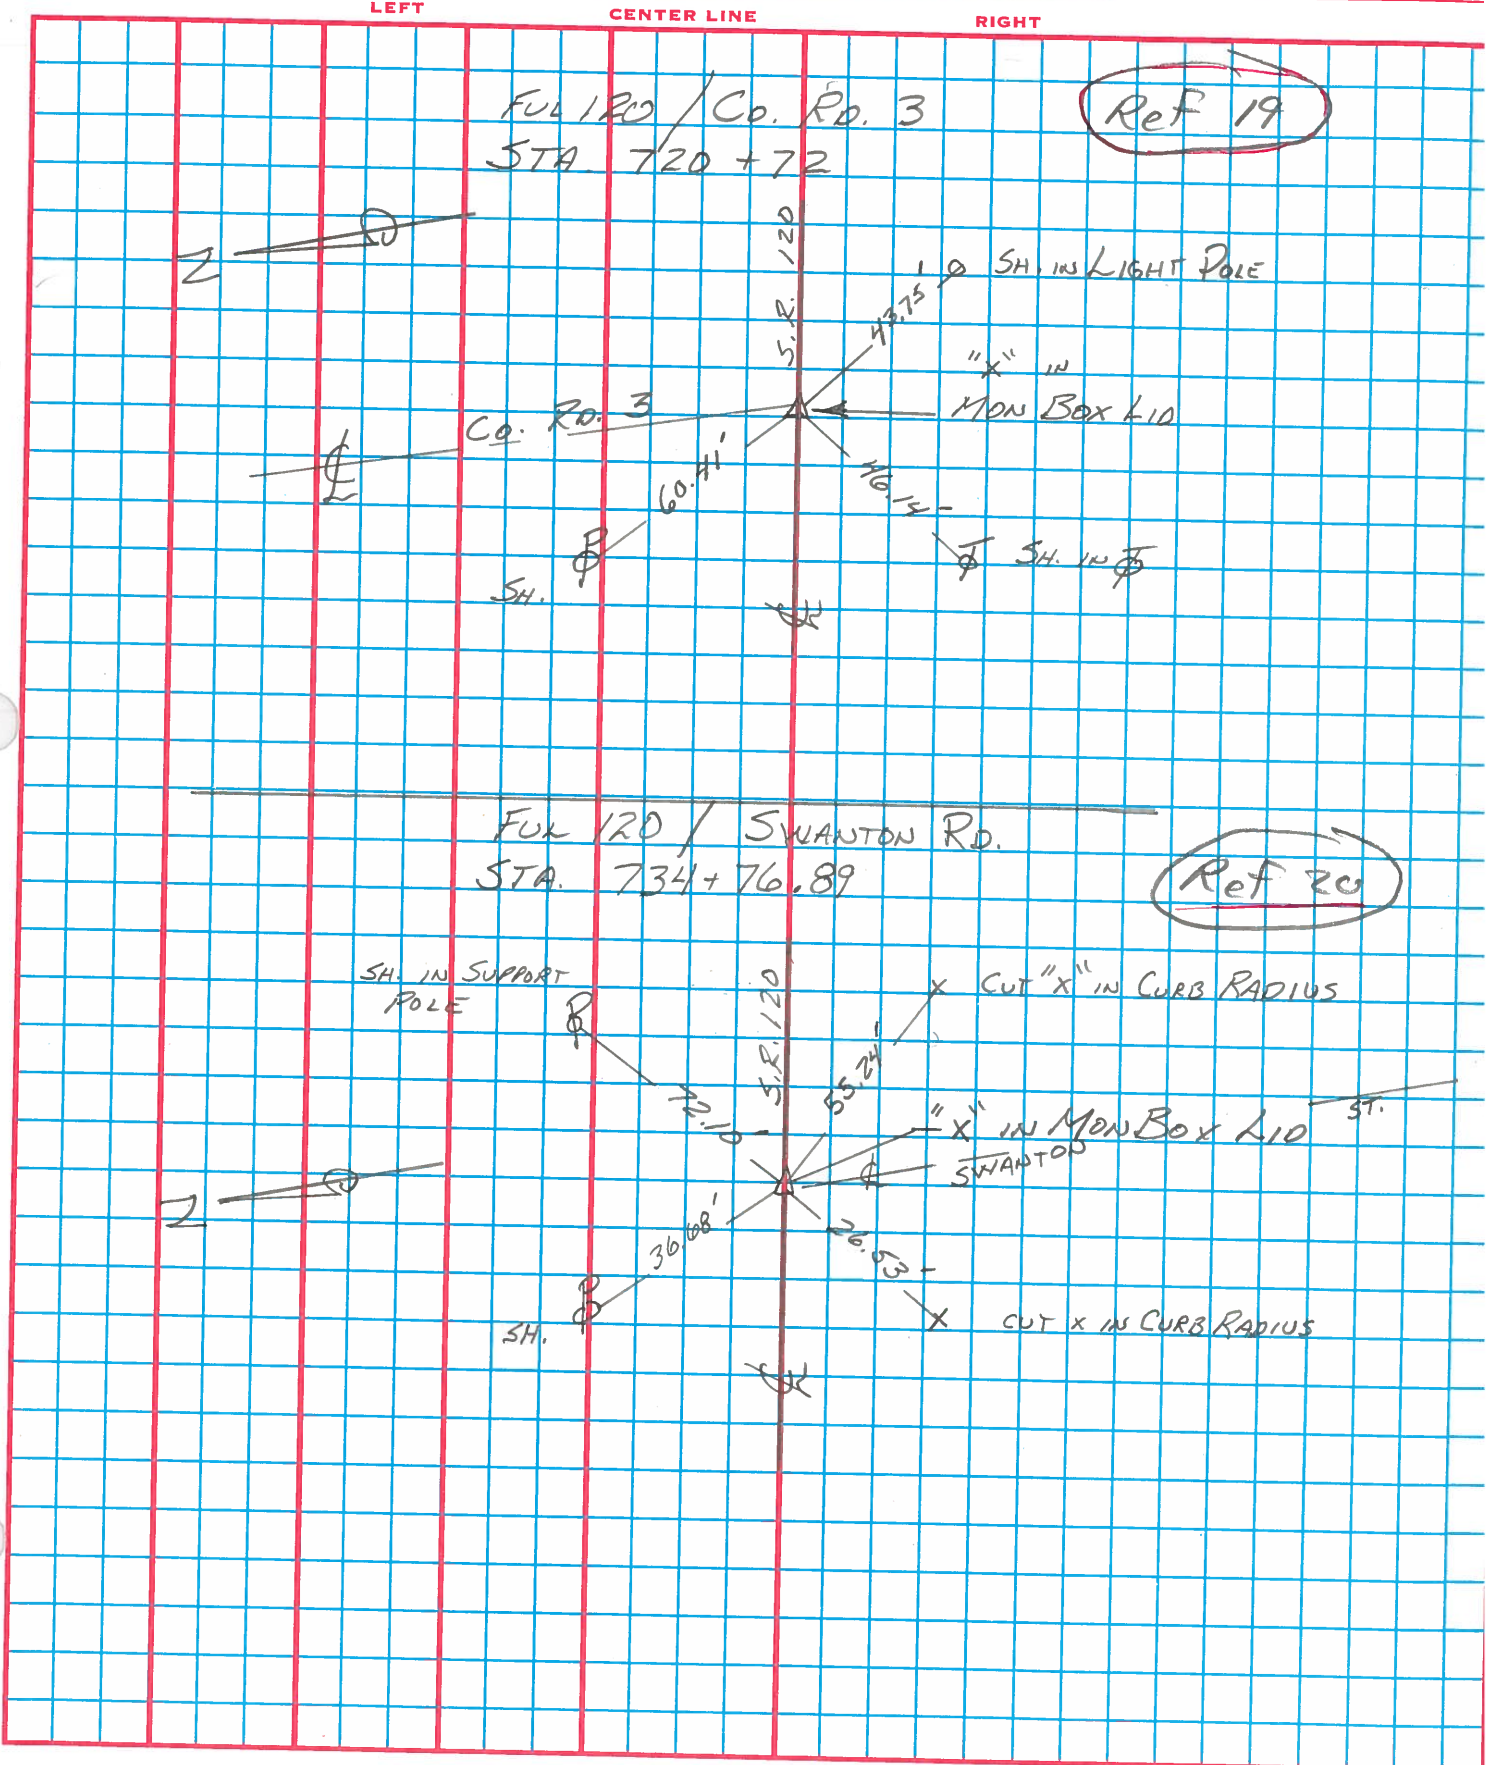 LEFT CENTER LINE RIGHT
FUL 120 / CO. RD. 3
Ref 19
STA. 720 +72
N
S.R. 120
43.75'
SH. IN LIGHT POLE
"X" IN
MON BOX LID
CO. RD. 3
℄
60.41'
46.14'
SH.
P
T SH. IN T
℄
FUL 120 / SWANTON RD.
STA. 734+76.89
Ref 20
SH. IN SUPPORT
POLE
P
S.R. 120
X CUT "X" IN CURB RADIUS
55.24'
72.10'
"X" IN MON BOX LID
℄ SWANTON ST.
N
36.68'
26.53'
P
SH.
X CUT X IN CURB RADIUS
℄